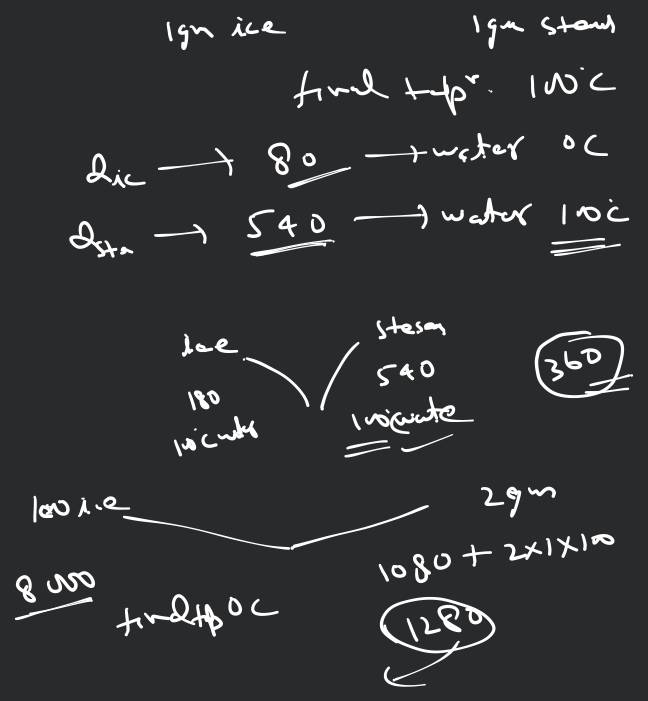 1gm ice 1gm steam
final temp r. 100°C
Q ic → 80 → water 0C
Q sta → 540 → water 100°C
Ice steam
180 540 360
100°C water 100°C wate
100 ice 2gm
8000 1080 + 2x1x100
final tp 0C 1280